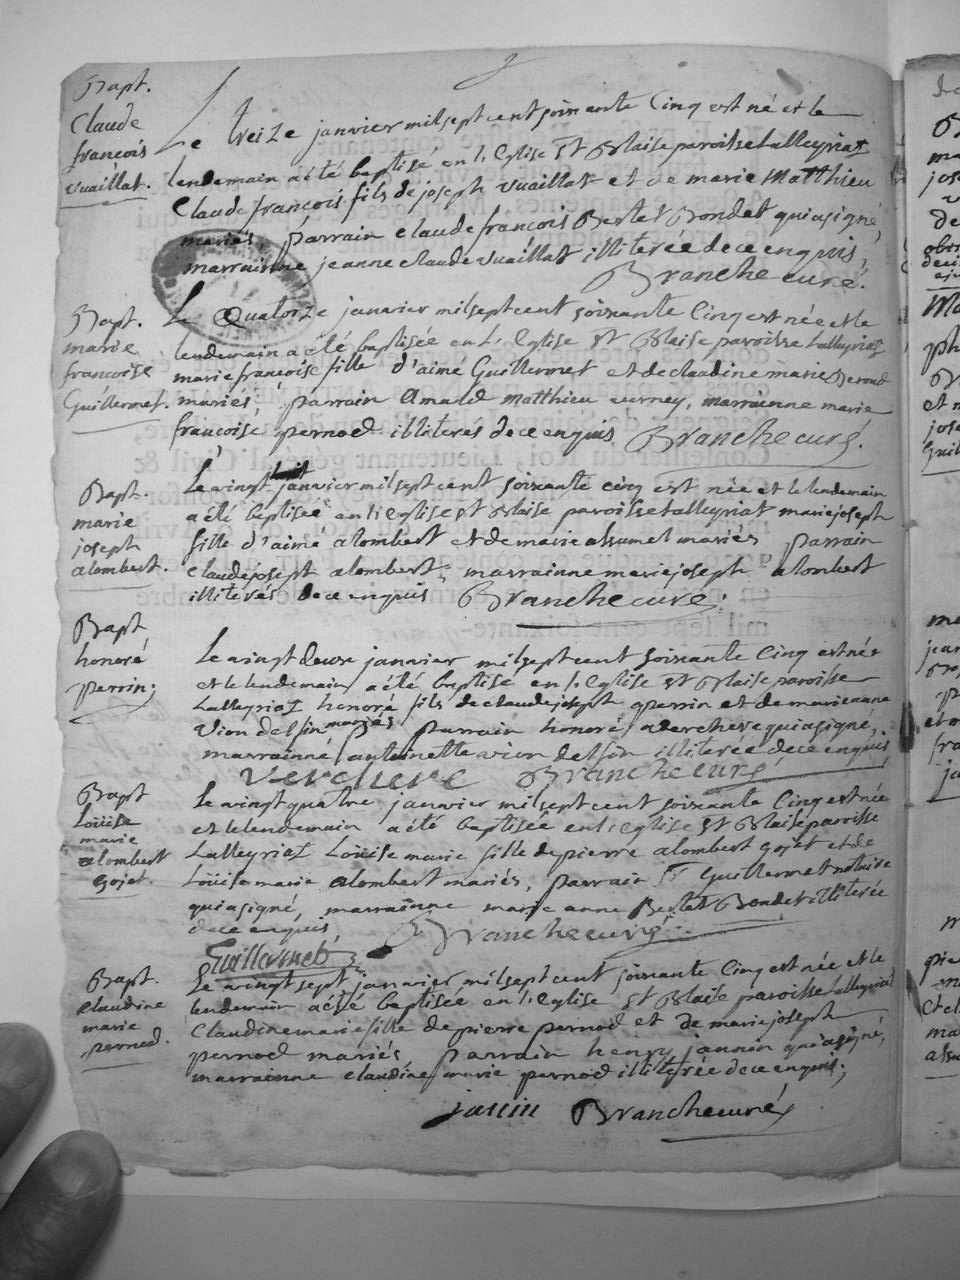 Bapt.
Claude
francois
vuaillat.
Le treize janvier mil sept cent soixante Cinq est né et le
lendemain a été baptisé en l'Eglise St Blaise paroisse Lalleyriat
Claude francois fils de joseph vuaillat et de marie Matthieu
mariés, parrain claude francois Berlet Bondet qui a signé,
marrainne jeanne claude vuaillat illiterée de ce enquis,
Branche curé.
Bapt.
marie
francoise
Guillermet.
Le Quatorze janvier mil sept cent soixante Cinq est née et le
lendemain a été baptisée en l'Eglise St Blaise paroisse Lalleyriat
marie francoise fille d'aimé Guillermet et de claudine marie
mariés, parrain Amand matthieu marrainne marie
francoise pernod illiterés de ce enquis Branche curé.
Bapt.
marie
joseph
alombert.
Le vingt janvier mil sept cent soixante cinq est née et le lendemain
a été baptisée en l'Eglise St Blaise paroisse Lalleyriat marie joseph
fille d'aime alombert et de marie assumel mariés parrain
claude joseph alombert, marrainne marie joseph alombert
illiterés de ce enquis Branche curé.
Bapt
honoré
perrin,
Le vingt deux janvier mil sept cent soixante Cinq est née
et le lendemain a été baptisé en l'Eglise St Blaise paroisse
Lalleyriat honoré fils de claude joseph perrin et de marie anne
vion delfin mariés parrain honoré verchere qui a signé,
marrainne antoinette vion delfin illiterée de ce enquis
verchere Branche curé
Bapt
Loüise
marie
alombert
gojet.
Le vingt quatre janvier mil sept cent soixante Cinq est née
et le lendemain a été baptisée en l'Eglise St Blaise paroisse
Lalleyriat Loüise marie fille de pierre alombert gojet et de
Loüise marie alombert mariés, parrain Sr Guillermet notaire
qui a signé, marrainne marie anne Berlet Bondet illiterée
de ce enquis, Branche curé
Guillermet
Bapt.
claudine
marie
pernod.
Le vingt sept janvier mil sept cent soixante Cinq est née et le
lendemain a été baptisée en l'Eglise St Blaise paroisse Lalleyriat
Claudine marie fille de pierre pernod et de marie joseph
pernod mariés, parrain henry jannin qui a signé,
marrainne claudine marie pernod illiterée de ce enquis,
janin Branche curé